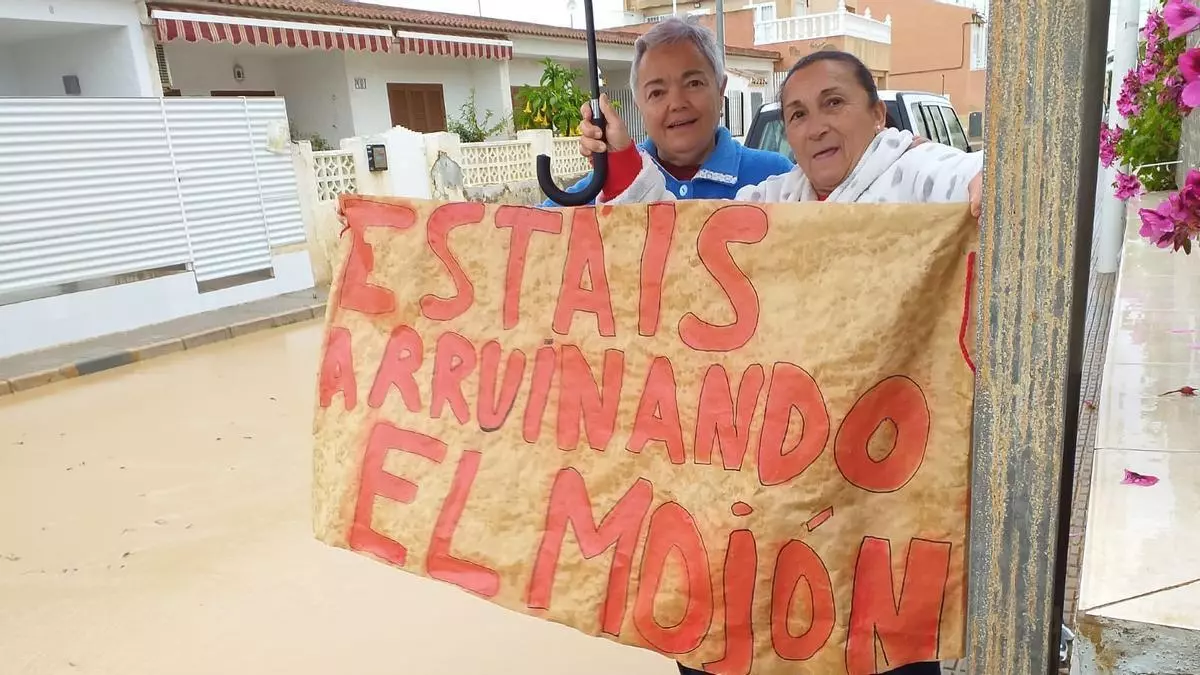 ESTAIS
ARRUiNANDO
EL MOJÓN